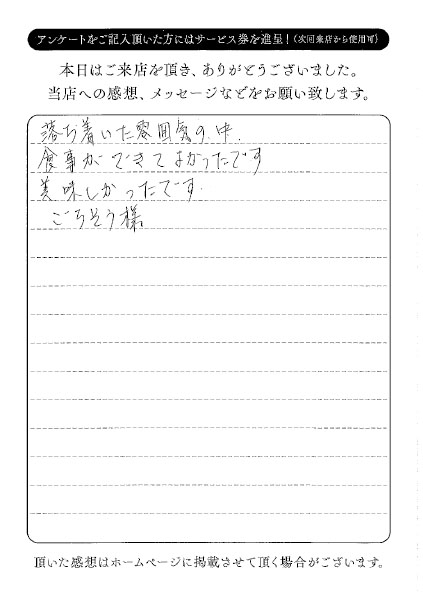 アンケートをご記入頂いた方にはサービス券を進呈！（次回来店から使用可）
本日はご来店を頂き、ありがとうございました。
当店への感想、メッセージなどをお願い致します。
落ち着いた雰囲気の中、
食事ができてよかったです
美味しかったです。
ごちそう様
頂いた感想はホームページに掲載させて頂く場合がございます。